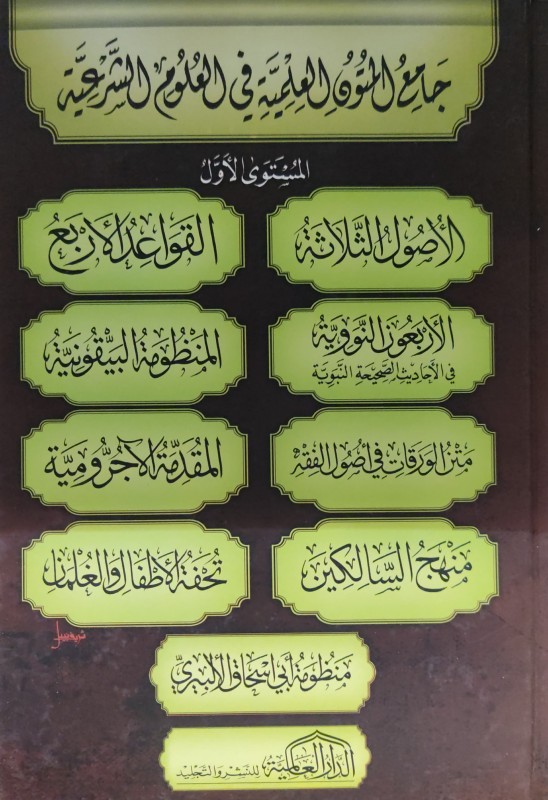 جَامِعُ المُتُونِ العِلْمِيَّةِ فِي العُلُومِ الشَّرْعِيَّةِ
المُسْتَوَى الأَوَّلُ
الأُصُولُ الثَّلَاثَةُ
القَوَاعِدُ الأَرْبَعُ
الأَرْبَعُونَ النَّوَوِيَّةُ
في الأَحَادِيثِ الصَّحِيحَةِ النَّبَوِيَّةِ
المَنْظُومَةُ البَيْقُونِيَّةُ
مَتْنُ الوَرَقَاتِ فِي أُصُولِ الفِقْهِ
المُقَدِّمَةُ الآجُرُّومِيَّةُ
مَنْهَجُ السَّالِكِينَ
تُحْفَةُ الأَطْفَالِ وَالغُلْمَانِ
مَنْظُومَةُ أَبِي إِسْحَاقَ الأَلْبِيرِيِّ
الدَّارُ العَالَمِيَّةُ لِلنَّشْرِ وَالتَّجْلِيدِ